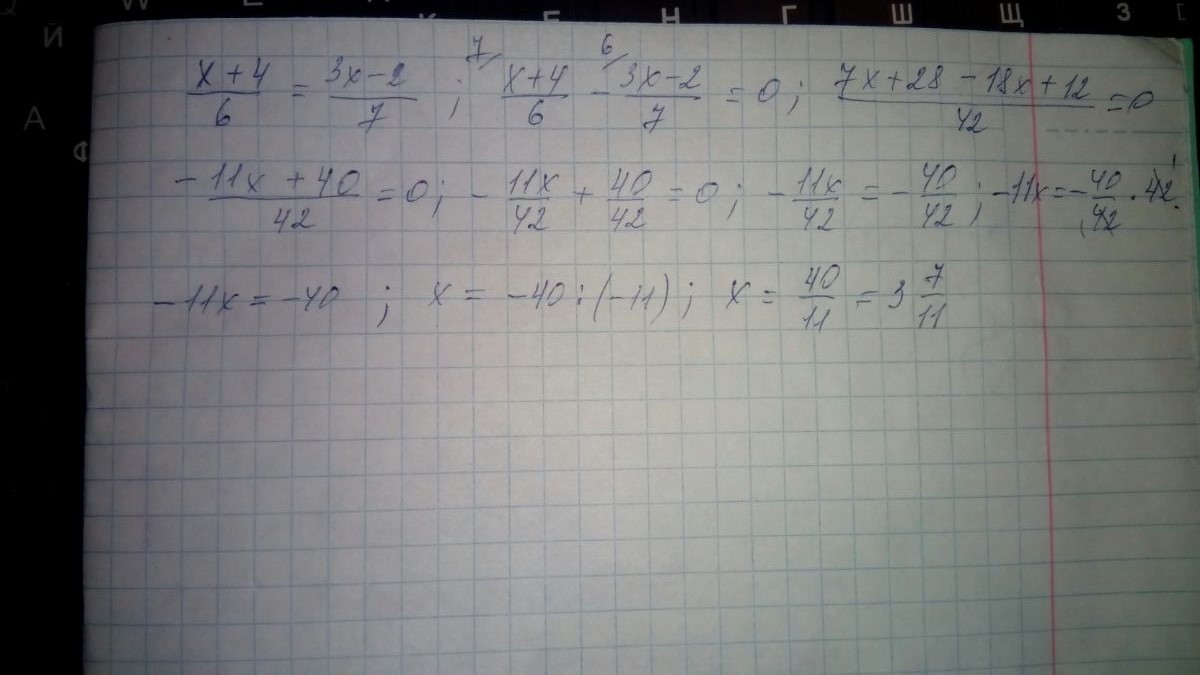 Й К Е Н Г Ш Щ З
А Ф
(x+4)/6 = (3x-2)/7 ; 7/ (x+4)/6 - 6/ (3x-2)/7 = 0 ; (7x+28-18x+12)/42 = 0
(-11x+40)/42 = 0 ; - 11x/42 + 40/42 = 0 ; - 11x/42 = - 40/42 ; -11x = - 40/42 · 42
-11x = -40 ; x = -40 : (-11) ; x = 40/11 = 3 7/11